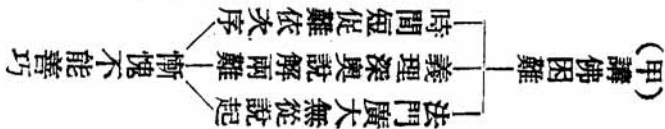 (甲)講佛困難
法門廣大無從說起
義理深奧說解兩難
時間短促難依次序
慚愧不能善巧